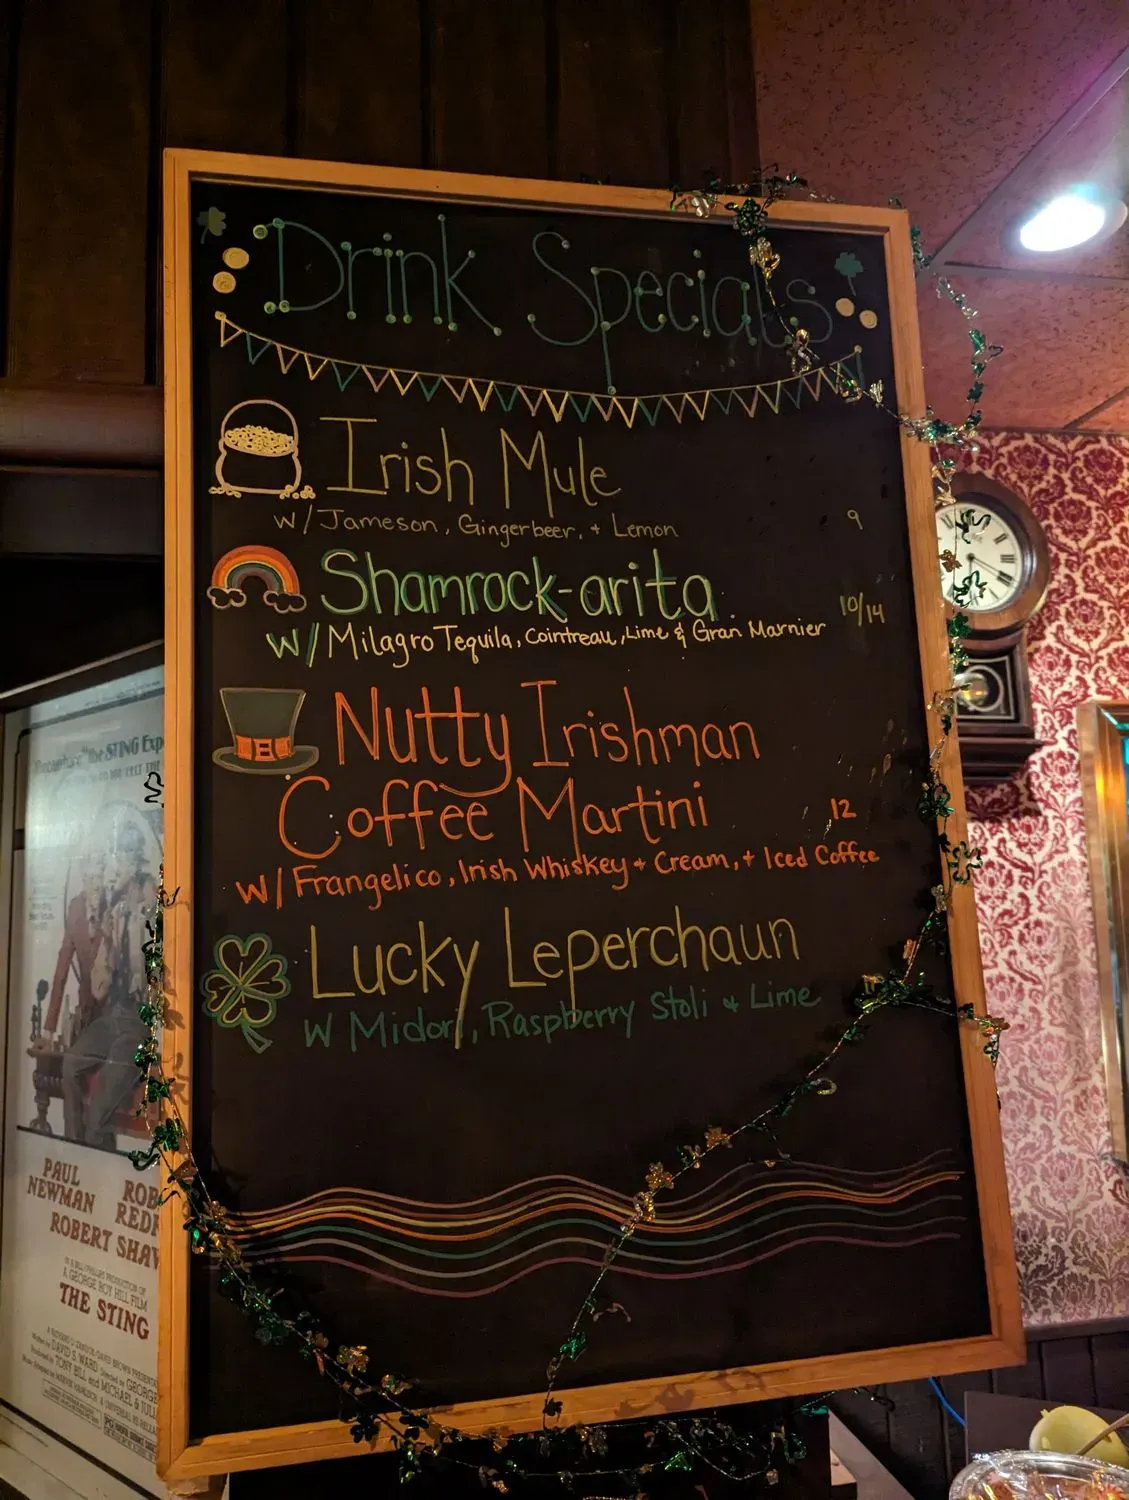 Drink Specials
Irish Mule
w/ Jameson, Gingerbeer, + Lemon
9
Shamrock-arita
10/14
w/ Milagro Tequila, Cointreau, Lime & Gran Marnier
Nutty Irishman
Coffee Martini
12
w/ Frangelico, Irish Whiskey + Cream, + Iced Coffee
Lucky Leperchaun
W Midori, Raspberry Stoli & Lime
PAUL
NEWMAN
ROBERT SHAW
A GEORGE ROY HILL FILM
THE STING
DAVID S. WARD
TONY BILL and MICHAEL